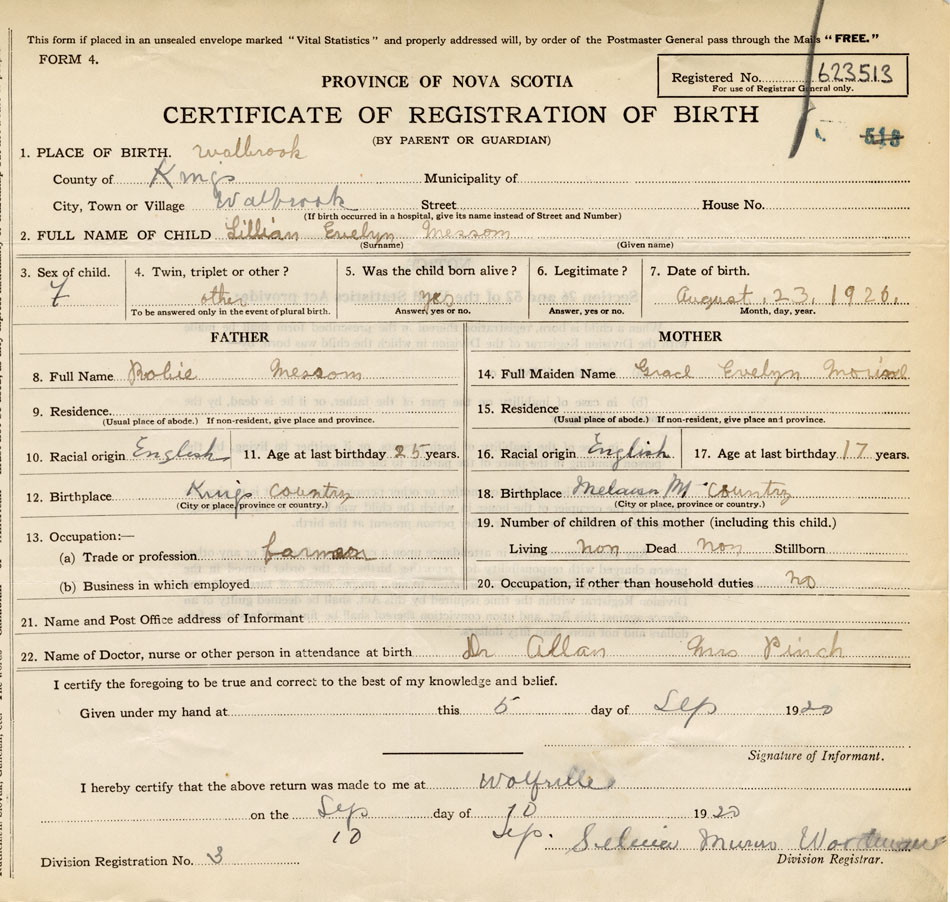 This form if placed in an unsealed envelope marked "Vital Statistics" and properly addressed will, by order of the Postmaster General pass through the Mails "FREE."
FORM 4.
Registered No. 623513
For use of Registrar General only.
PROVINCE OF NOVA SCOTIA
CERTIFICATE OF REGISTRATION OF BIRTH
518
(BY PARENT OR GUARDIAN)
1. PLACE OF BIRTH. Walbrook
County of Kings Municipality of
City, Town or Village Walbrook Street House No.
(If birth occurred in a hospital, give its name instead of Street and Number)
2. FULL NAME OF CHILD Lillian Evelyn Messom
(Surname) (Given name)
3. Sex of child. 4. Twin, triplet or other? 5. Was the child born alive? 6. Legitimate? 7. Date of birth.
f other yes August. 23. 1920.
To be answered only in the event of plural birth. Answer, yes or no. Answer, yes or no. Month, day, year.
FATHER MOTHER
8. Full Name Robie Messom 14. Full Maiden Name Grace Evelyn
9. Residence. 15. Residence
(Usual place of abode.) If non-resident, give place and province. (Usual place of abode.) If non-resident, give place and province.
10. Racial origin English 11. Age at last birthday 25 years. 16. Racial origin English 17. Age at last birthday 17 years.
12. Birthplace Kings country 18. Birthplace country
(City or place, province or country.) (City or place, province or country.)
19. Number of children of this mother (including this child.)
13. Occupation:—
(a) Trade or profession Living non Dead non Stillborn
(b) Business in which employed 20. Occupation, if other than household duties no
21. Name and Post Office address of Informant
22. Name of Doctor, nurse or other person in attendance at birth Dr Allan Mrs Pinch
I certify the foregoing to be true and correct to the best of my knowledge and belief.
Given under my hand at this 5 day of Sep 1920
Signature of Informant.
I hereby certify that the above return was made to me at Wolfville
on the Sep day of 10 1920
10 Sep. Selina Munro
Division Registration No. 3 Division Registrar.